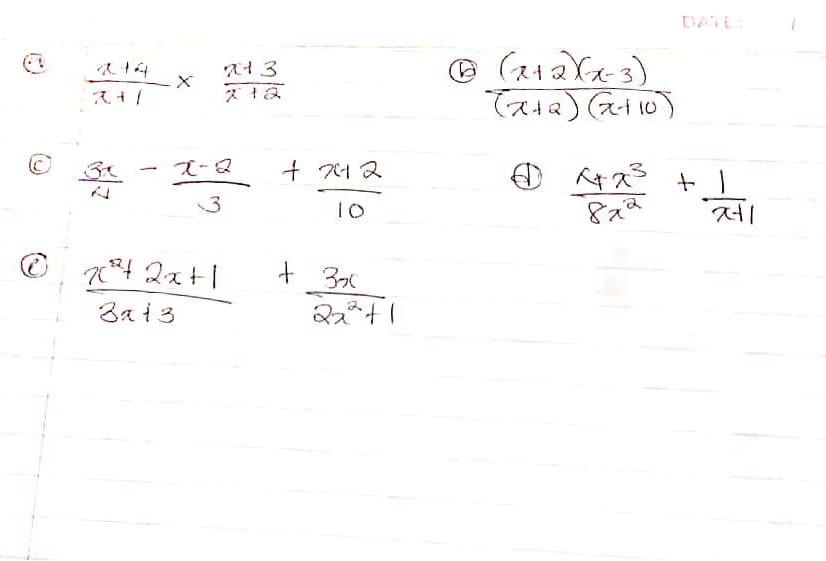 DATE: /
(a) (x+4)/(x+1) × (x+3)/(x+2)
(b) ((x+2)(x-3))/((x+2)(x+10))
(c) 3x/4 - (x-2)/3 + (x+2)/10
(d) 4x³/8x² + 1/(x+1)
(e) (x²+2x+1)/(3x+3) + 3x/(2x²+1)